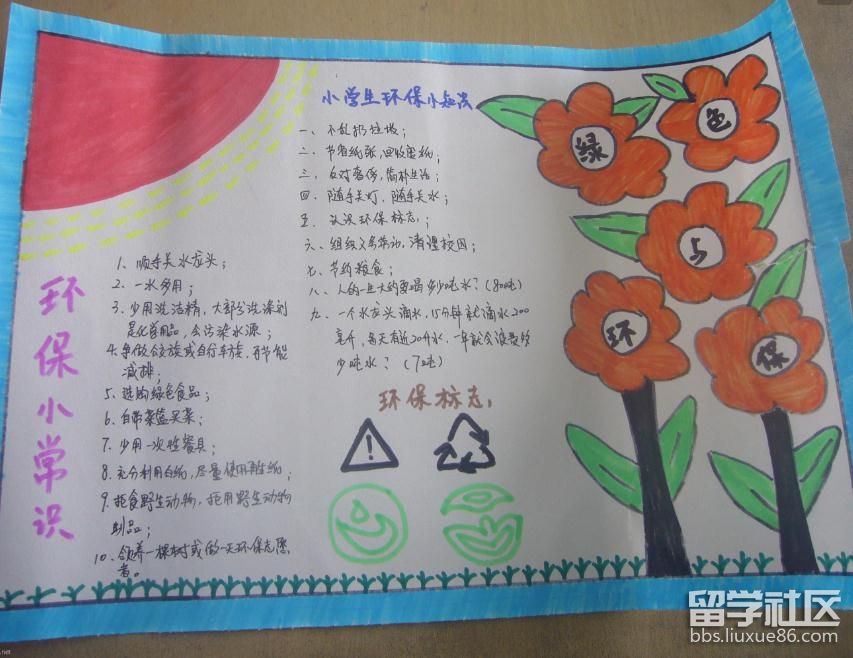 小学生环保小知识
一、不乱扔垃圾；
二、节省纸张，回收废纸；
三、反对奢侈，简朴生活；
四、随手关灯，随手关水；
五、认识环保标志；
六、组织义务劳动，清理校园；
七、节约粮食；
八、人的一生大约要喝多少吨水？（80吨）
九、一个水龙头滴水，15分钟就滴水200
毫升，每天有近20升水，一年就会浪费约
少吨水？（7吨）
环保标志
环保小常识
1、顺手关水龙头；
2、一水多用；
3、少用洗洁精，大部分洗涤剂
是化学用品，会污染水源；
4、争做公交族或自行车族，再节能
减排；
5、选购绿色食品；
6、自带菜篮买菜；
7、少用一次性餐具；
8、充分利用白纸，尽量使用再生纸；
9、拒食野生动物，拒用野生动物
制品；
10、领养一棵树或做一天环保志愿
者。
绿色与环保
留学社区
bbs.liuxue86.com